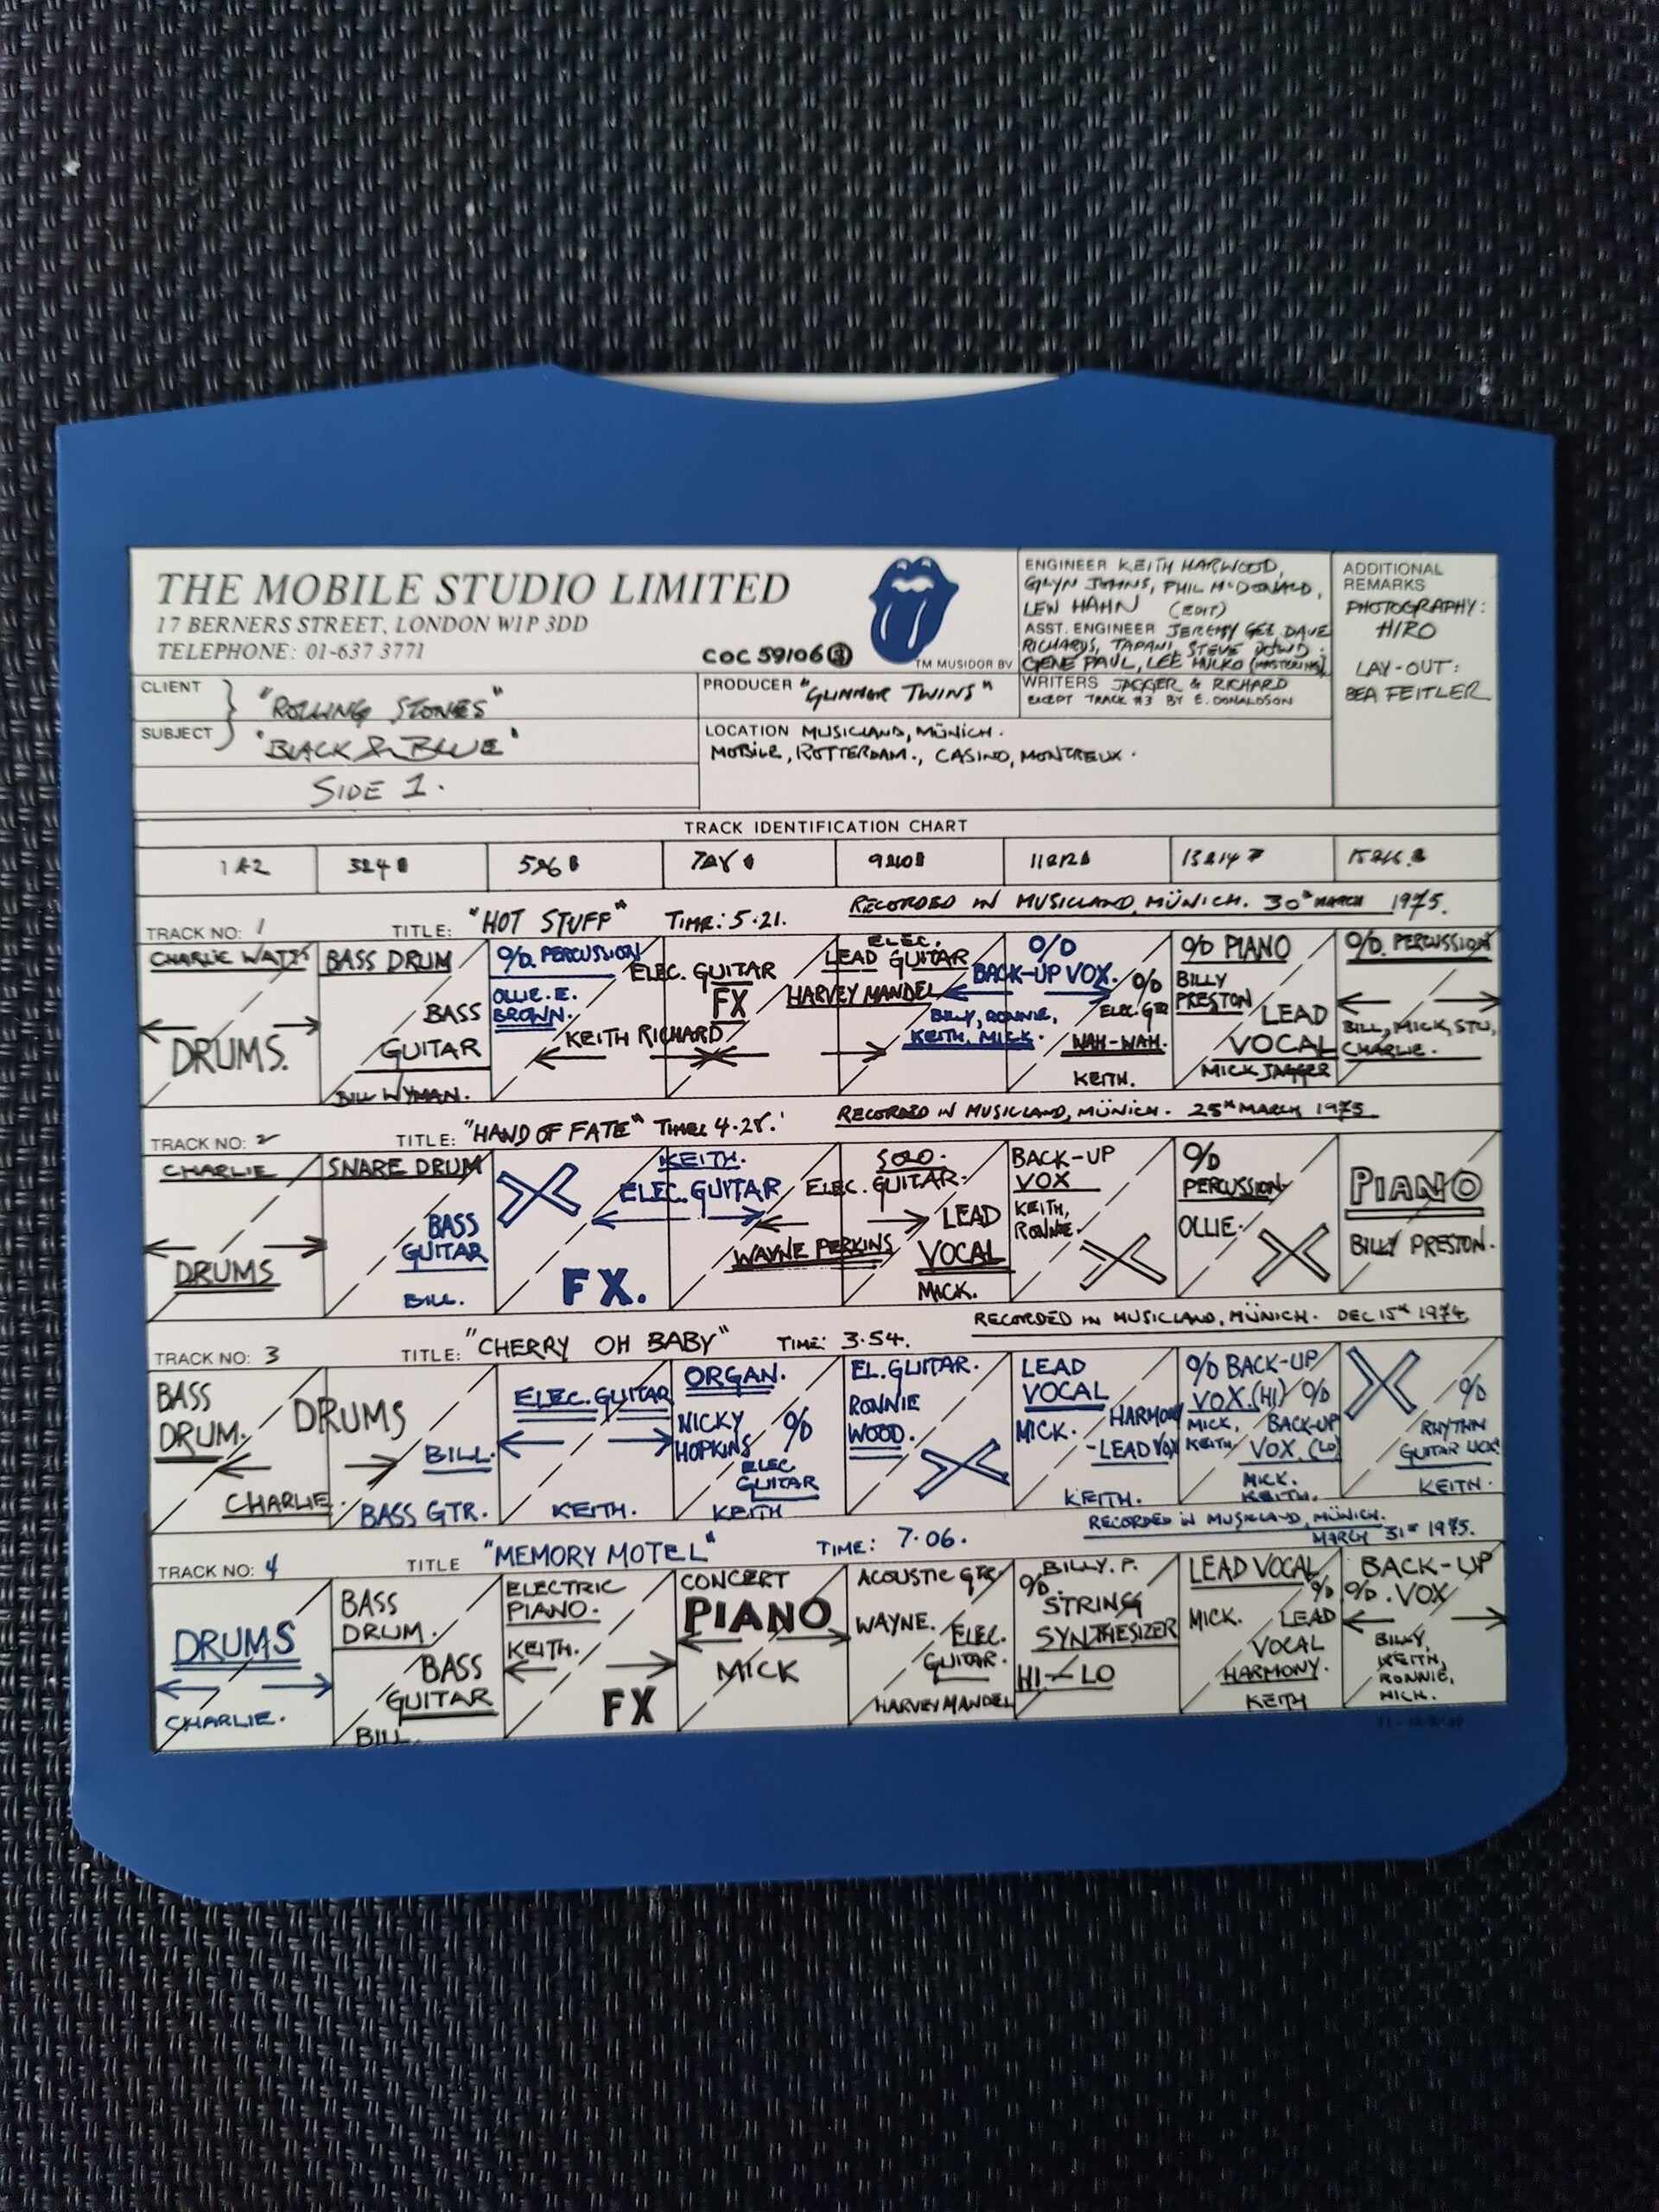 THE MOBILE STUDIO LIMITED
17 BERNERS STREET, LONDON W1P 3DD
TELEPHONE: 01-637 3771
COC 59106
TM MUSIDOR BV
ENGINEER KEITH HARWOOD,
GLYN JOHNS, PHIL McDONALD,
LEW HAHN (EDIT)
ASST. ENGINEER JEREMY GEE, DAVE
RICHARDS, TAPANI, STEVE DOWD.
GENE PAUL, LEE HULKO (MASTERING)
WRITERS JAGGER & RICHARD
EXCEPT TRACK #3 BY E. DONALDSON
ADDITIONAL
REMARKS
PHOTOGRAPHY:
HIRO
LAY-OUT:
BEA FEITLER
CLIENT "ROLLING STONES"
SUBJECT "BLACK & BLUE"
SIDE 1.
PRODUCER "GLIMMER TWINS"
LOCATION MUSICLAND, MÜNICH.
MOBILE, ROTTERDAM., CASINO, MONTREUX.
TRACK IDENTIFICATION CHART
1 & 2 3 & 4 5 & 6 7 & 8 9 & 10 11 & 12 13 & 14 15 & 16
RECORDED IN MUSICLAND, MÜNICH. 30TH MARCH 1975.
TRACK NO: 1 TITLE: "HOT STUFF" TIME: 5.21.
CHARLIE WATTS
DRUMS.
BASS DRUM
BASS
GUITAR
BILL WYMAN.
O/D. PERCUSSION
OLLIE. E.
BROWN.
ELEC. GUITAR
FX
KEITH RICHARD
ELEC.
LEAD GUITAR
HARVEY MANDEL
O/D
BACK-UP VOX.
BILLY, RONNIE,
KEITH, MICK.
O/D
ELEC. GTR
WAH-WAH.
KEITH.
O/D PIANO
BILLY
PRESTON
LEAD
VOCAL
MICK JAGGER
O/D. PERCUSSION
BILL, MICK, STU,
CHARLIE.
RECORDED IN MUSICLAND, MÜNICH. 25TH MARCH 1975
TRACK NO: 2 TITLE: "HAND OF FATE" TIME: 4.28.
CHARLIE
DRUMS
SNARE DRUM
BASS
GUITAR
BILL.
FX.
KEITH.
ELEC. GUITAR
SOLO.
ELEC. GUITAR.
WAYNE PERKINS
LEAD
VOCAL
MICK.
BACK-UP
VOX
KEITH,
RONNIE.
O/D
PERCUSSION
OLLIE.
PIANO
BILLY PRESTON.
RECORDED IN MUSICLAND, MÜNICH. DEC 15TH 1974.
TRACK NO: 3 TITLE: "CHERRY OH BABY" TIME: 3.54.
BASS
DRUM.
DRUMS
CHARLIE.
BILL.
BASS GTR.
ELEC. GUITAR
KEITH.
ORGAN.
NICKY
HOPKINS
O/D
ELEC
GUITAR
KEITH
EL. GUITAR.
RONNIE
WOOD.
LEAD
VOCAL
MICK.
HARMONY
-LEAD VOX
KEITH.
O/D BACK-UP
VOX. (HI)
MICK,
KEITH
O/D
BACK-UP
VOX. (LO)
MICK.
KEITH.
O/D
RHYTHM
GUITAR
KEITH.
RECORDED IN MUSICLAND, MÜNICH.
MARCH 31ST 1975.
TRACK NO: 4 TITLE "MEMORY MOTEL" TIME: 7.06.
DRUMS
CHARLIE.
BASS
DRUM.
BASS
GUITAR
BILL.
ELECTRIC
PIANO.
KEITH.
FX
CONCERT
PIANO
MICK
ACOUSTIC GTR.
WAYNE.
ELEC.
GUITAR.
HARVEY MANDEL
BILLY. P.
O/D. STRING
SYNTHESIZER
HI - LO
LEAD VOCAL
MICK.
O/D
LEAD
VOCAL
HARMONY.
KEITH
BACK-UP
O/D. VOX
BILLY,
KEITH,
RONNIE,
MICK.